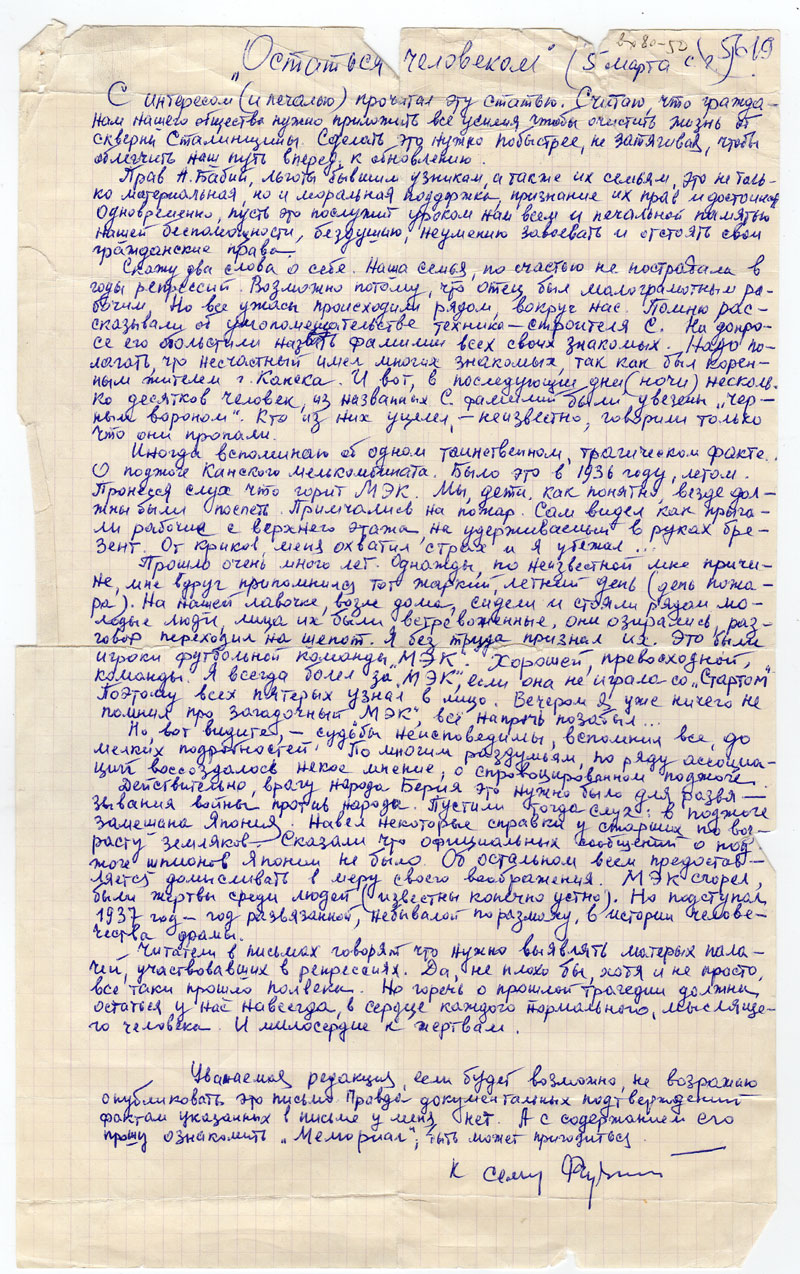 „Остаться человеком" (5 марта с. г.)
С интересом (и печалью) прочитал эту статью. Считаю, что гражда-
нам нашего общества нужно приложить все усилия чтобы очистить жизнь от
скверны Сталинщины. Сделать это нужно побыстрее, не затягивая, чтобы
облегчить наш путь вперед, к обновлению.
Прав А. Бабий, льготы бывшим узникам, а также их семьям, это не толь-
ко материальная, но и моральная поддержка, признание их прав и достоинств
Одновременно, пусть это послужит уроком нам всем и печальной памятью
нашей беспомощности, бездушию, неумению завоевать и отстоять свои
гражданские права.
Скажу два слова о себе. Наша семья, по счастью не пострадала в
годы репрессий. Возможно потому, что отец был малограмотным ра-
бочим. Но все ужасы происходили рядом, вокруг нас. Помню рас-
сказывали об умопомешательстве техника-строителя С. На допро-
се его обольстили назвать фамилии всех своих знакомых. Надо по-
лагать, что несчастный имел многих знакомых, так как был корен-
ным жителем г. Канска. И вот, в последующие дни (ночи) несколь-
ко десятков человек, из названных С. фамилий были увезены „чер-
ным вороном". Кто из них уцелел, – неизвестно, говорили только
что они пропали.
Иногда вспоминаю об одном таинственном, трагическом факте..
О поджоге Канского мелькомбината. Было это в 1936 году, летом.
Пронесся слух что горит МЭК. Мы, дети, как понятно, везде дол-
жны были поспеть. Примчались на пожар. Сам видел как прыга-
ли рабочие с верхнего этажа, на удерживаемый в руках бре-
зент. От криков, меня охватил страх и я убежал...
Прошло очень много лет. Однажды, по неизвестной мне причи-
не, мне вдруг припомнился тот жаркий, летний день (день пожа-
ра). На нашей лавочке, возле дома, сидели и стояли рядом мо-
лодые люди, лица их были встревоженные, они озирались, раз-
говор переходил на шепот. Я без труда признал их. Это были
игроки футбольной команды „МЭК". Хорошей, превосходной,
команды. Я всегда болел за „МЭК", если она не играла со „Стартом"
Поэтому всех пятерых узнал в лицо. Вечером я уже ничего не
помнил про загадочный „МЭК", всё напрочь позабыл...
Но, вот видите, – судьбы неисповедимы, вспомнил все, до
мелких подробностей. По многим раздумьям, по ряду ассоциа-
ций воссоздалось некое мнение, о спровоцированном поджоге.
Действительно, врагу народа Берия это нужно было для развя-
зывания войны против народа. Пустили тогда слух: в поджоге
замешана Япония. Навел некоторые справки у старших по воз-
расту земляков. Сказали что официальных сообщений о под-
жоге шпионов Японии не было. Об остальном всем предостав-
ляется домысливать в меру своего воображения. МЭК сгорел,
были жертвы среди людей (известны конечно устно). Но подступал
1937 год – год развязанной, небывалой по размаху, в истории челове-
чества драмы.
Читатели в письмах говорят что нужно выявлять матерых пала-
чей, участвовавших в репрессиях. Да, не плохо бы, хотя и не просто,
все таки прошло полвека. Но горечь о прошлой трагедии должна
остаться у нас навсегда, в сердце каждого нормального, мысляще-
го человека. И милосердие к жертвам.
Уважаемая редакция, если будет возможно, не возражаю
опубликовать это письмо. Правда документальных подтверждений
фактам указанных в письме у меня нет. А с содержанием его
прошу ознакомить „Мемориал", быть может пригодиться.
К сему